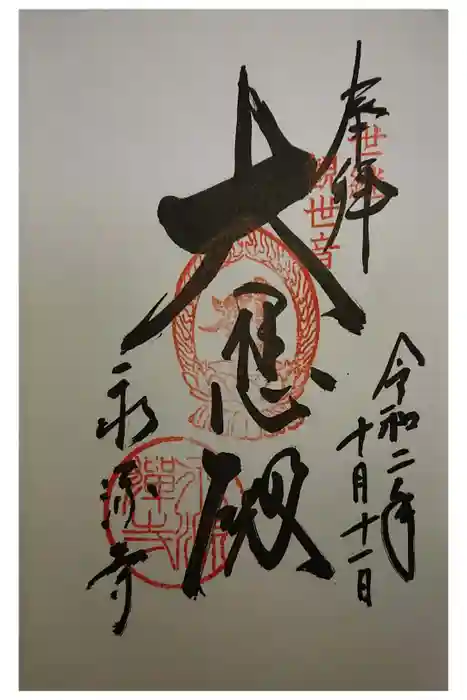 奉拝
世継
観世音
令和二年
十月十一日
大悲殿
永源寺
永源
禪寺